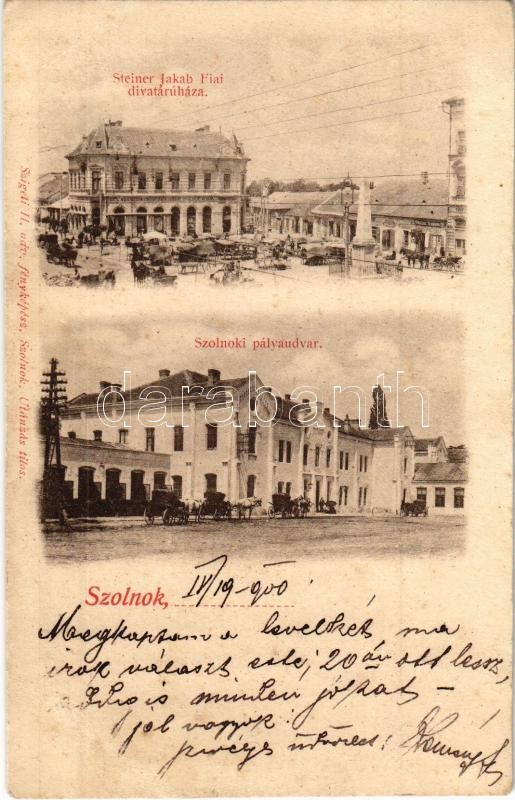 Steiner Jakab Fiai
divatárúháza.
Szigeti H. udv. fényképész, Szolnok. Utánzás tilos.
Szolnoki pályaudvar.
darabanth
Szolnok, IV/19-900
Megkaptam a levelkét ma
írok választ este, 20 án ott lessz,
is minden jókat -
jol vagyok!
üdvözlet!